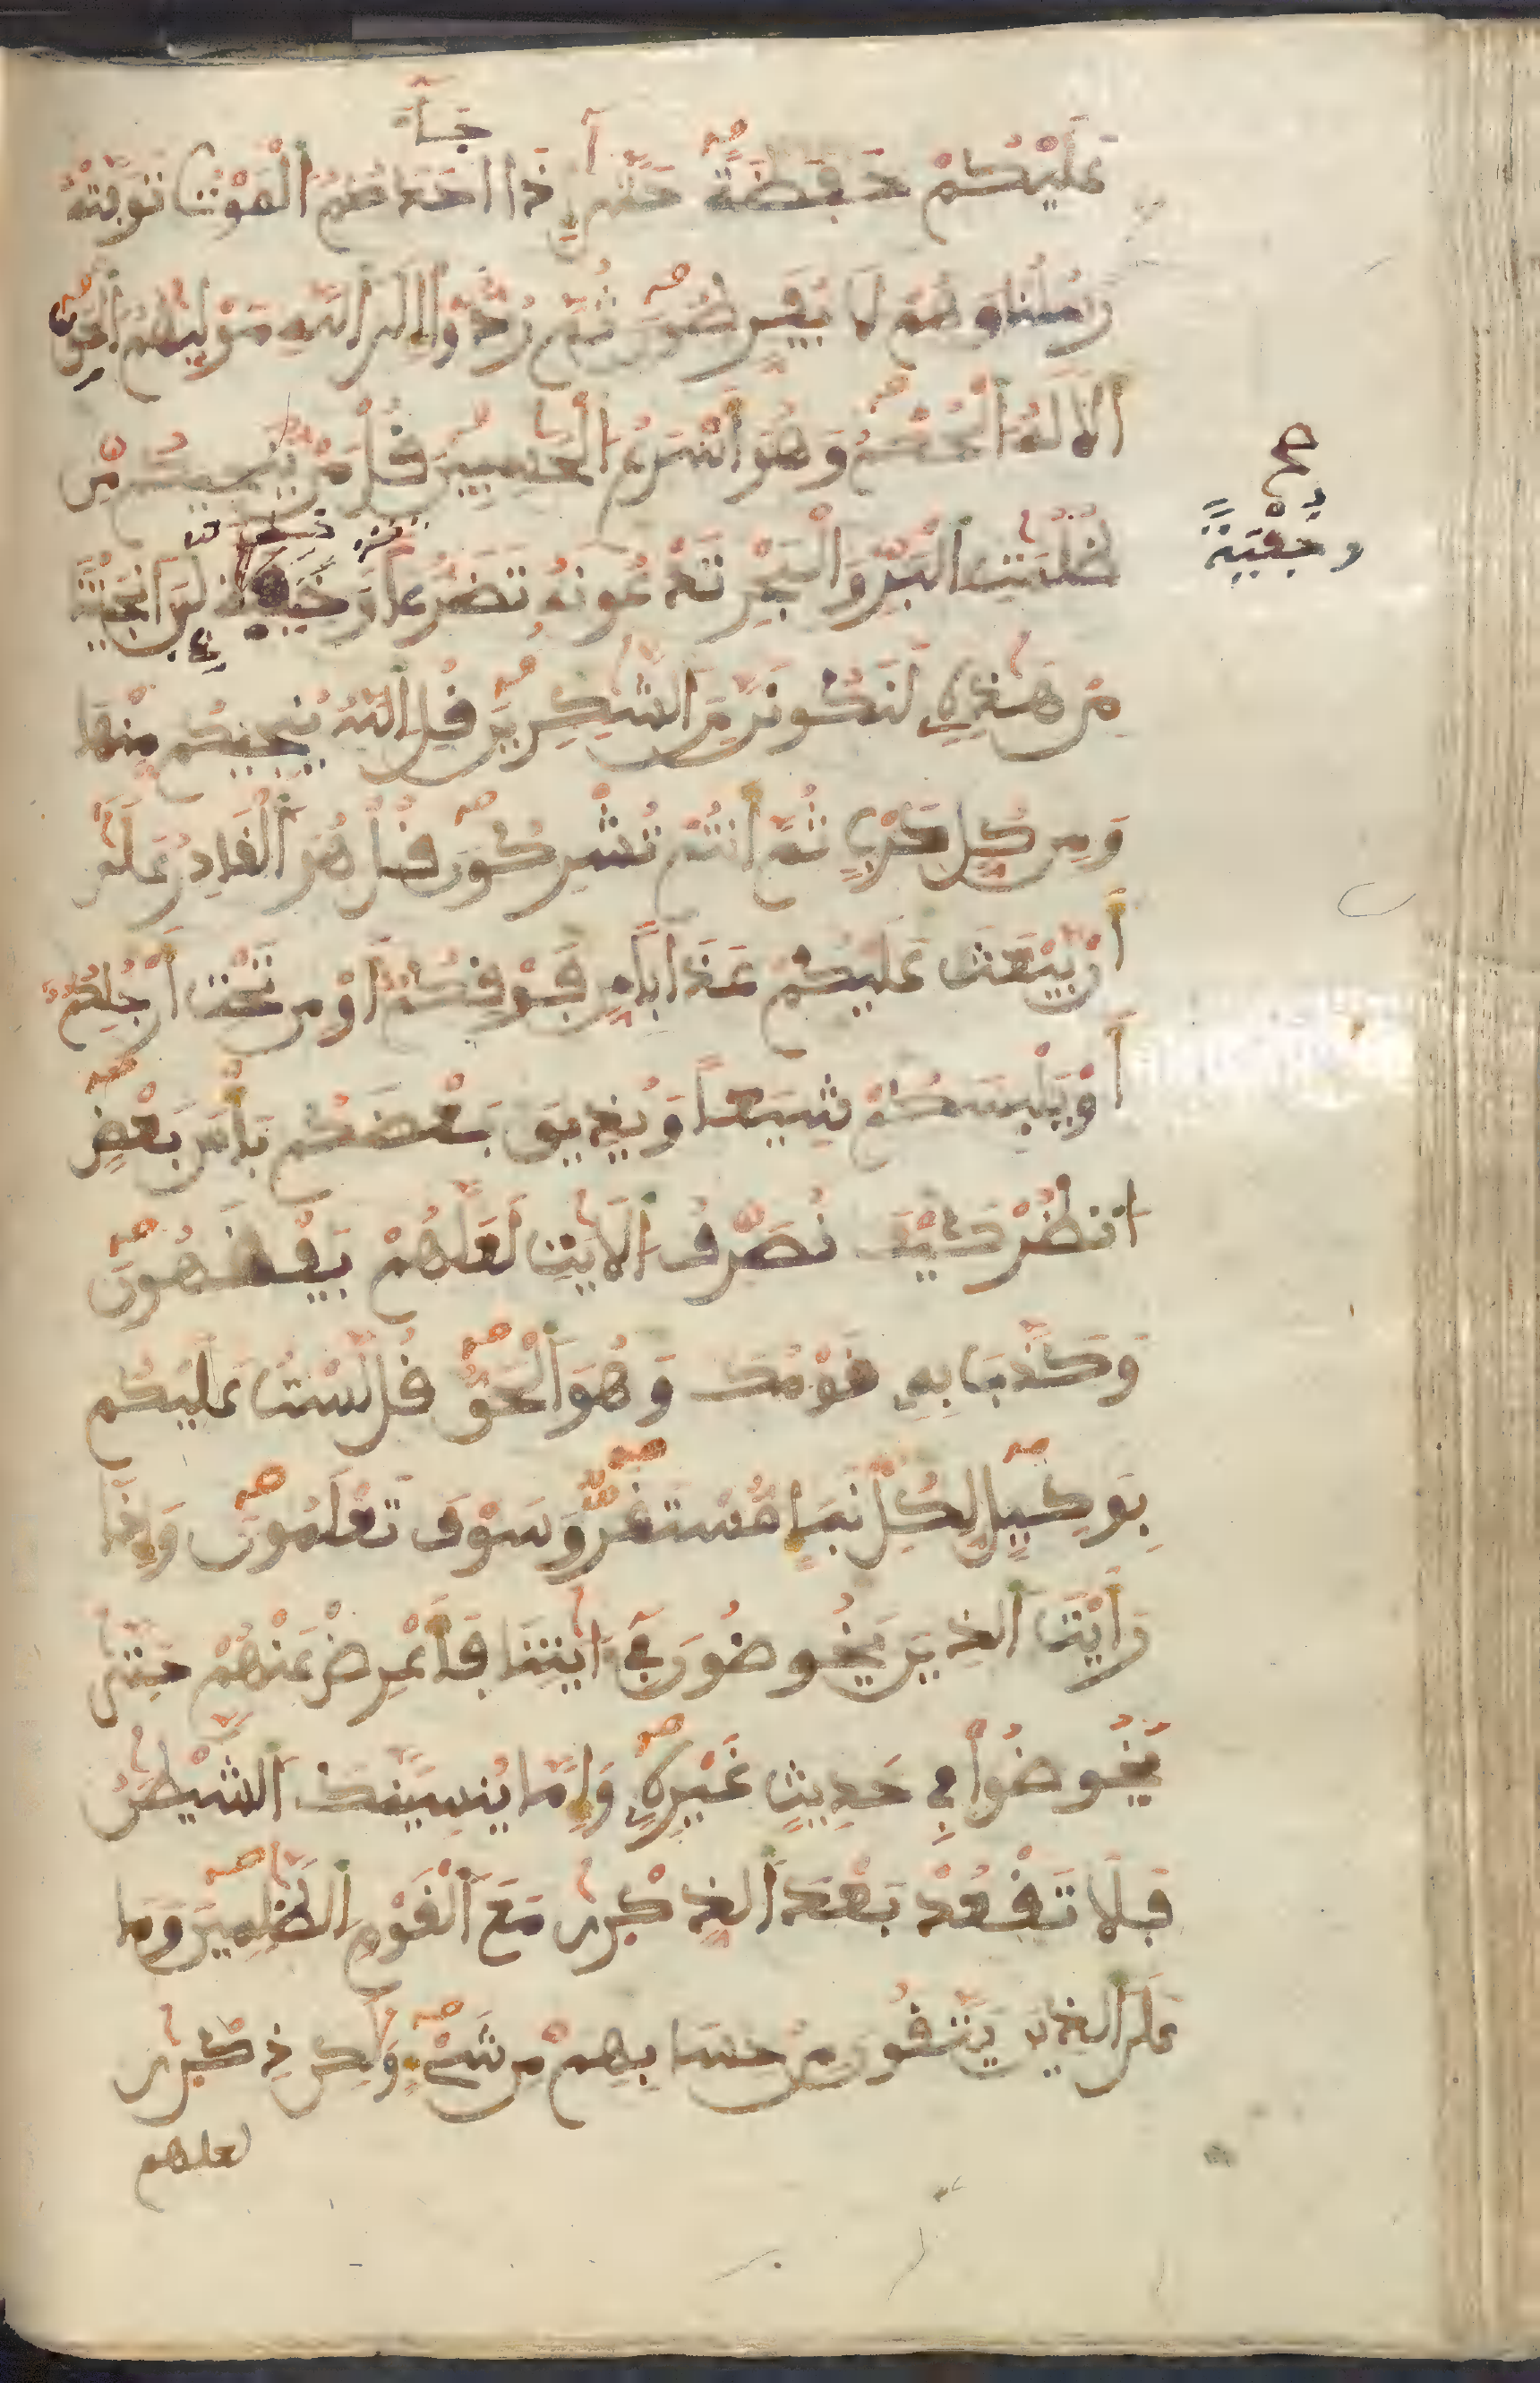 جَآءَ
عَلَيْكُمْ حَفَظَةً حَتَّىٰٓ إِذَا احَدَكُمُ الْمَوْتُ تَوَفَّتْهُ
رُسُلُنَا وَهُمْ لَا يُفَرِّطُونَ ثُمَّ رُدُّوٓا إِلَى اَللَّهِ مَوْلَيٰهُمُ اُلْحَقِّ
أَلَا لَهُ اُلْحُكْمُ وَهُوَ أَسْرَعُ اُلْحَٰسِبِينَ قُلْ مَنْ يُّنَجِّيكُم مِّن
ظُلُمَٰتِ اِلْبَرِّ وَالْبَحْرِ تَدْعُونَهُ تَضَرُّعاً لَّئِنَ اَنجَيْتَنَا
وَخُفْيَةً
صح
مِنْ هَٰذِهِ لَنَكُونَنَّ مِنَ اَلشَّٰكِرِينَ قُلِ اِللَّهُ يُنجِيكُم مِّنْهَا
وَمِن كُلِّ كَرْبٍ ثُمَّ أَنتُمْ تُشْرِكُونَ قُلْ هُوَ اَلْقَادِرُ عَلَىٰٓ
أَنْ يَّبْعَثَ عَلَيْكُمْ عَذَاباً مِّن فَوْقِكُمُ أَوْ مِن تَحْتِ أَرْجُلِكُمُ
أَوْ يَلْبِسَكُمْ شِيَعاً وَيُذِيقَ بَعْضَكُم بَأْسَ بَعْضٍ
اُنظُرْ كَيْفَ نُصَرِّفُ اُلَايَٰتِ لَعَلَّهُمْ يَفْقَهُونَ
وَكَذَّبَ بِهِ قَوْمُكَ وَهُوَ اَلْحَقُّ قُل لَّسْتُ عَلَيْكُم
بِوَكِيلٍ لِّكُلِّ نَبَإٍ مُّسْتَقَرٌّ وَسَوْفَ تَعْلَمُونَ وَإِذَا
رَأَيْتَ اَلذِينَ يَخُوضُونَ فِيٓ ءَايَٰتِنَا فَأَعْرِضْ عَنْهُمْ حَتَّىٰ
يَخُوضُوا فِي حَدِيثٍ غَيْرِهِ وَإِمَّا يُنسِيَنَّكَ اَلشَّيْطَٰنُ
فَلَا تَقْعُدْ بَعْدَ اَلذِّكْرَىٰ مَعَ اَلْقَوْمِ اِلظَّٰلِمِينَ وَمَا
عَلَى اَلذِينَ يَتَّقُونَ مِنْ حِسَابِهِم مِّن شَيْءٍ وَلَٰكِن ذِكْرَىٰ
لعلهم